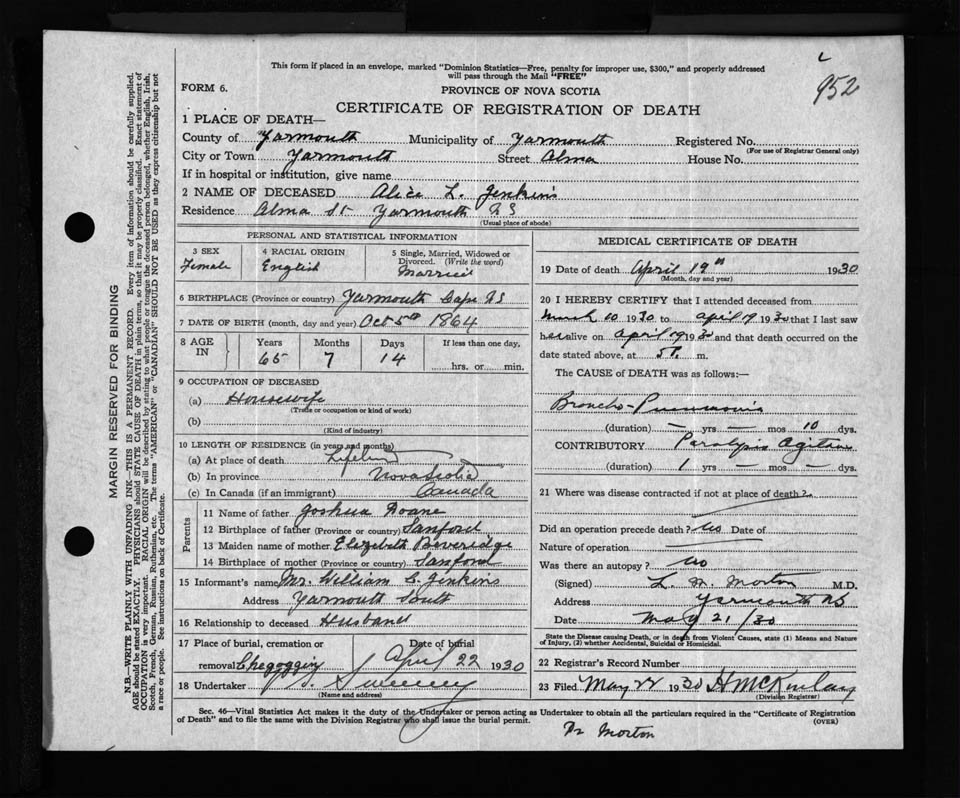 This form if placed in an envelope, marked "Dominion Statistics—Free, penalty for improper use, $300," and properly addressed
will pass through the Mail "FREE"
952
FORM 6.
PROVINCE OF NOVA SCOTIA
CERTIFICATE OF REGISTRATION OF DEATH
1 PLACE OF DEATH—
County of Yarmouth Municipality of Yarmouth Registered No.
(For use of Registrar General only)
City or Town Yarmouth Street Alma House No.
If in hospital or institution, give name
2 NAME OF DECEASED Alice L. Jenkins
Residence Alma St Yarmouth NS
(Usual place of abode)
PERSONAL AND STATISTICAL INFORMATION
3 SEX
Female
4 RACIAL ORIGIN
English
5 Single, Married, Widowed or
Divorced. (Write the word)
Married
6 BIRTHPLACE (Province or country) Yarmouth Cape NS
7 DATE OF BIRTH (month, day and year) Oct 5th 1864
8 AGE
IN
Years
65
Months
7
Days
14
If less than one day,
hrs. or min.
9 OCCUPATION OF DECEASED
(a) Housewife
(Trade or occupation or kind of work)
(b)
(Kind of industry)
10 LENGTH OF RESIDENCE (in years and months)
(a) At place of death Lifetime
(b) In province Nova Scotia
(c) In Canada (if an immigrant) Canada
Parents
11 Name of father Joshua Doane
12 Birthplace of father (Province or country) Sanford
13 Maiden name of mother Elizabeth Beveridge
14 Birthplace of mother (Province or country) Sanford
15 Informant's name Mr. William S. Jenkins
Address Yarmouth South
16 Relationship to deceased Husband
17 Place of burial, cremation or
removal Chegoggin
Date of burial
April 22 1930
18 Undertaker Sweeney
(Name and address)
MEDICAL CERTIFICATE OF DEATH
19 Date of death April 19th 1930
(Month, day and year)
20 I HEREBY CERTIFY that I attended deceased from
March 10 1930 to April 19 1930 that I last saw
her alive on April 19 30 and that death occurred on the
date stated above, at 5 P. m.
The CAUSE of DEATH was as follows:—
Broncho-Pneumonia
(duration) — yrs — mos 10 dys.
CONTRIBUTORY Paralysis Agitans
(duration) 1 yrs — mos — dys.
21 Where was disease contracted if not at place of death?
Did an operation precede death? No Date of
Nature of operation
Was there an autopsy? No
(Signed) L. M. Morton M.D.
Address Yarmouth NS
Date May 21/30
State the Disease causing Death, or in death from Violent Causes, state (1) Means and Nature
of Injury, (2) whether Accidental, Suicidal or Homicidal.
22 Registrar's Record Number
23 Filed May 24 1930 H McKinlay
(Division Registrar)
Sec. 46—Vital Statistics Act makes it the duty of the Undertaker or person acting as Undertaker to obtain all the particulars required in the "Certificate of Registration
of Death" and to file the same with the Division Registrar who shall issue the burial permit.
(OVER)
Dr Morton
MARGIN RESERVED FOR BINDING
N.B.—WRITE PLAINLY WITH UNFADING INK—THIS IS A PERMANENT RECORD. Every item of information should be carefully supplied.
AGE should be stated EXACTLY. PHYSICIANS should STATE CAUSE OF DEATH in plain terms, so that it may be properly classified. Exact statement of
OCCUPATION is very important. RACIAL ORIGIN will be described by stating to what people or tongue the deceased person belonged, whether English, Irish,
Scotch, French, German, Russian, Ruthenian, etc. The terms "AMERICAN" or "CANADIAN" SHOULD NOT BE USED as they express citizenship but not
a race or people. See instructions on back of Certificate.